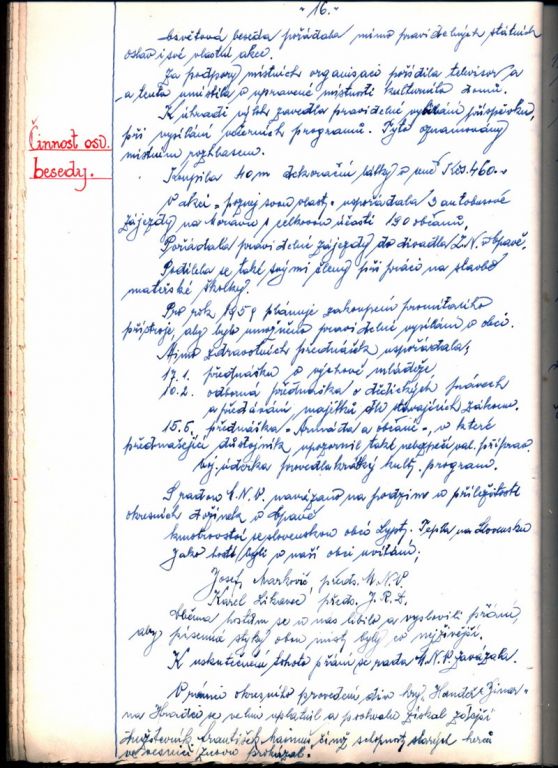 - 16. -
Osvětová beseda pořádala mimo pravidelných státních
oslav i své vlastní akce.
Za podpory místních organisací pořídila televisor a
a tento umístila v upravené místnosti kulturního domu.
K úhradě výloh zavedla pravidelné vybírání příspěvku,
při vysílání večerních programů. Tyto oznamovány
místním rozhlasem.
Činnost osv.
besedy.
Koupila 40 m dekorační látky v ceně Kčs 460.-
V akci "poznej svou vlast" uspořádala 3 autobusové
zájezdy na Moravu s celkovou účastí 190 občanů.
Pořádala pravidelné zájezdy do divadla Z.N. v Opavě.
Podílela se také svými členy při práci na stavbě
mateřské školky.
Pro rok 1959 plánuje zakoupení promítacího
přístroje, aby bylo umožněno pravidelné vysílání v obci.
Mimo zdravotních přednášek uspořádala:
17.1. přednášku o výchově mládeže
10.2. odborná přednáška o dědických právech
a předávání majetků dle stávajících zákonů.
15.5. přednáška "Armáda a občané", v které
přednášející důstojník upozornil také nebezpečí val. příprav.
úderka provedla krátký kult. program.
S radou M.N.V. navázáno na podzim v příležitosti
okresních dožinek v Opavě
kmotrovství se slovenskou obcí Lypt. Teplá na Slovensku
jako hosté byli v naší obci uvítáni:
Josef Markovič, předs. M.N.V.
Karel předs. J.R.D.
Oběma hostům se u nás líbilo a vyslovili přání,
aby písemné styky obou míst byly co nejživější.
K uskutečnění tohoto přání se rada M.N.V. zavázala.
V rámci okresního provedení div. hry
na Hradci se velmi uplatnil a pochvalu získal zdejší
družstevník František čímž schopnost starých herců
ve vesnici znovu prokázal.